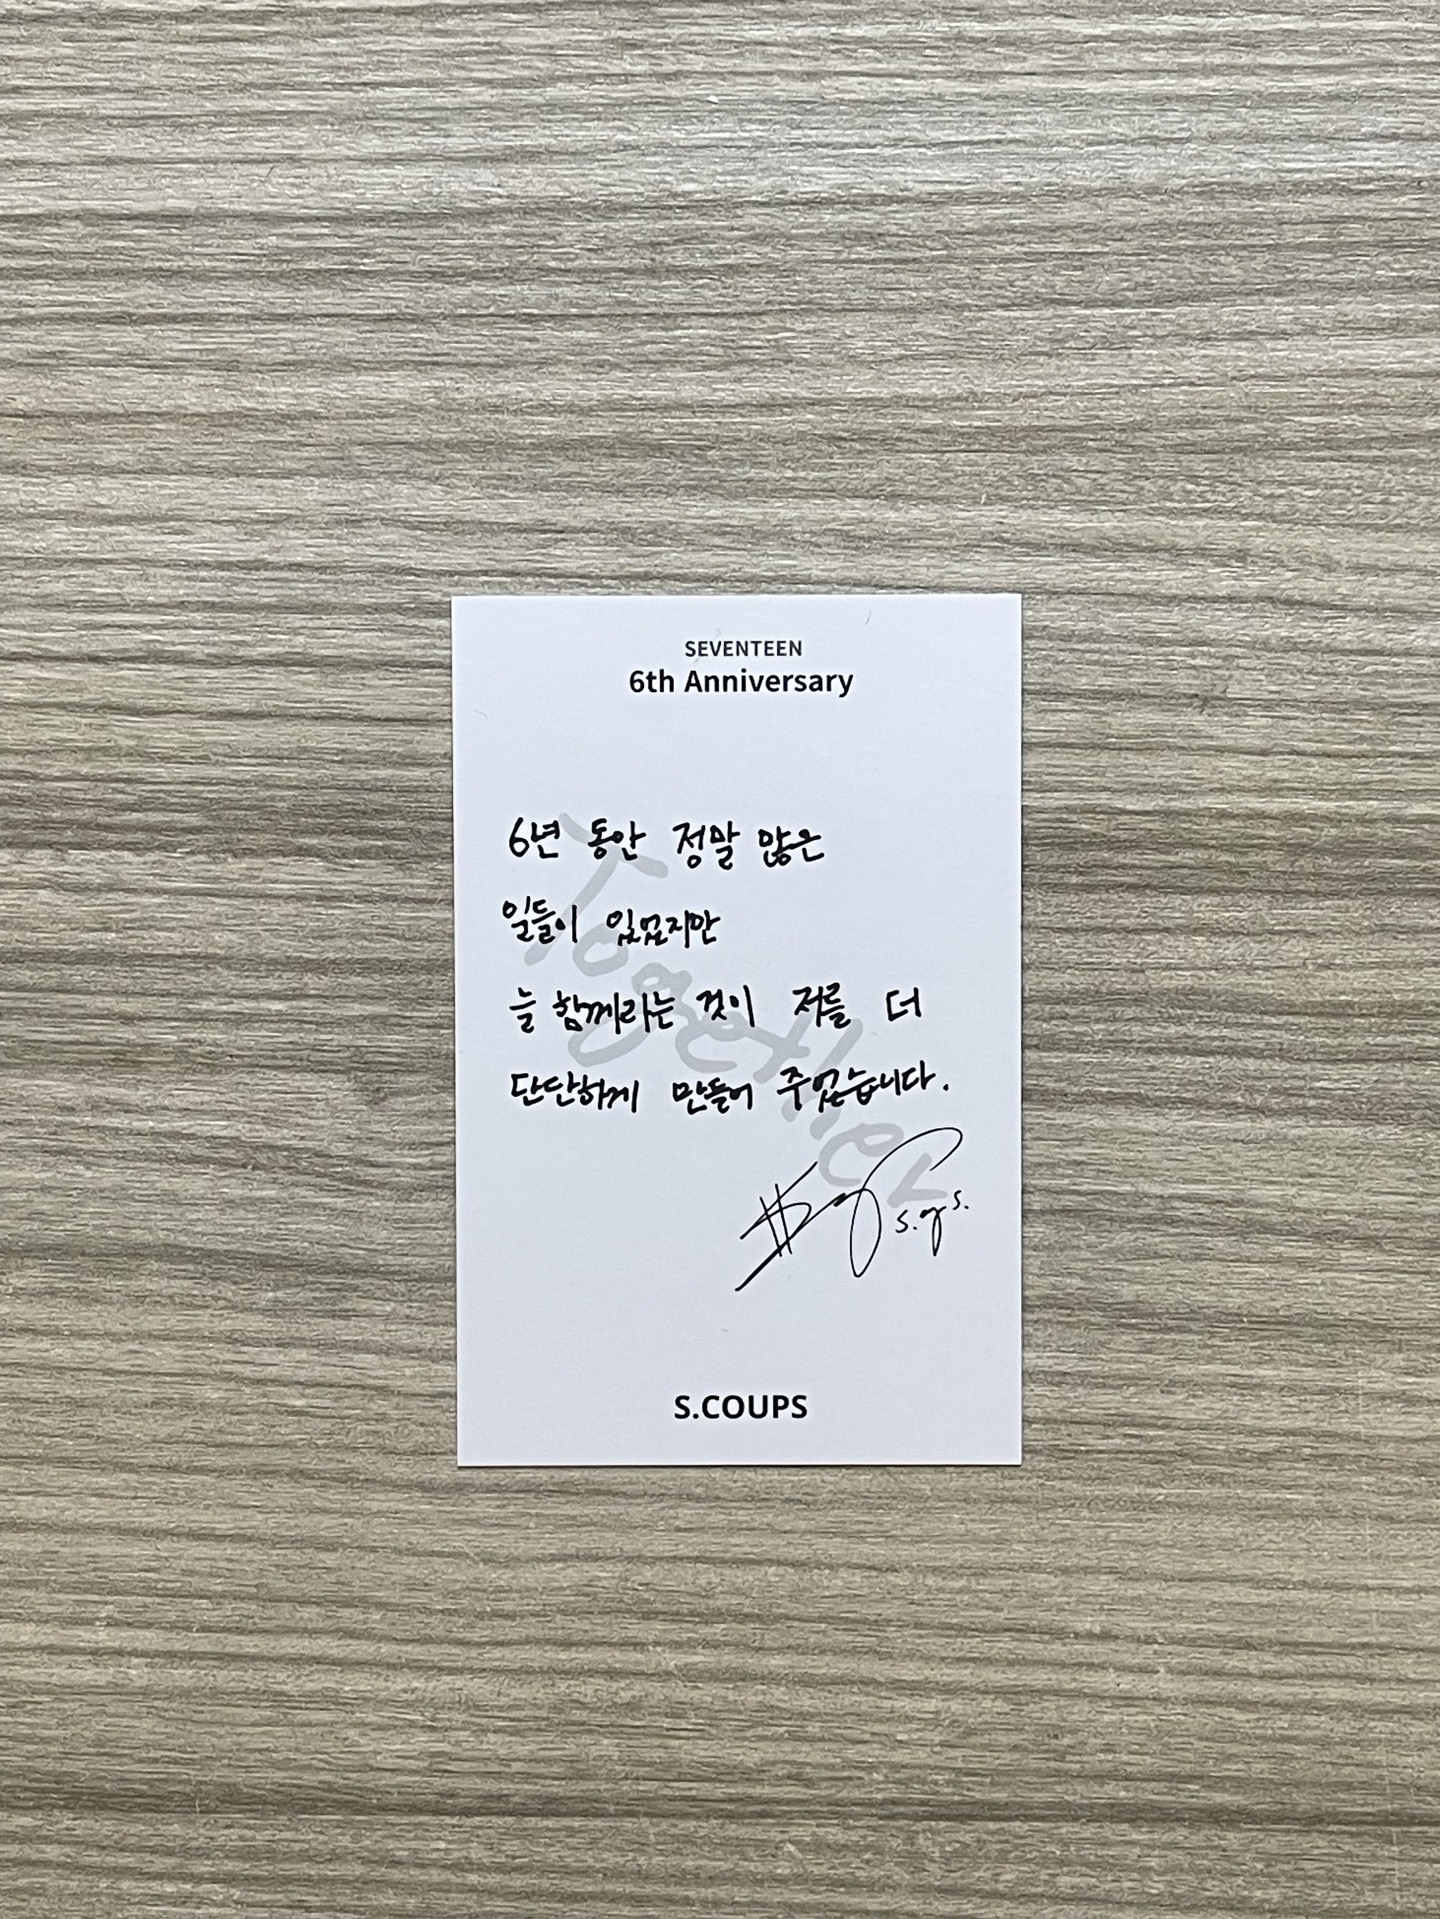 SEVENTEEN
6th Anniversary
Together
6년 동안 정말 많은
일들이 있었지만
늘 함께라는 것이 저를 더
단단하게 만들어 주었습니다.
S.COUPS